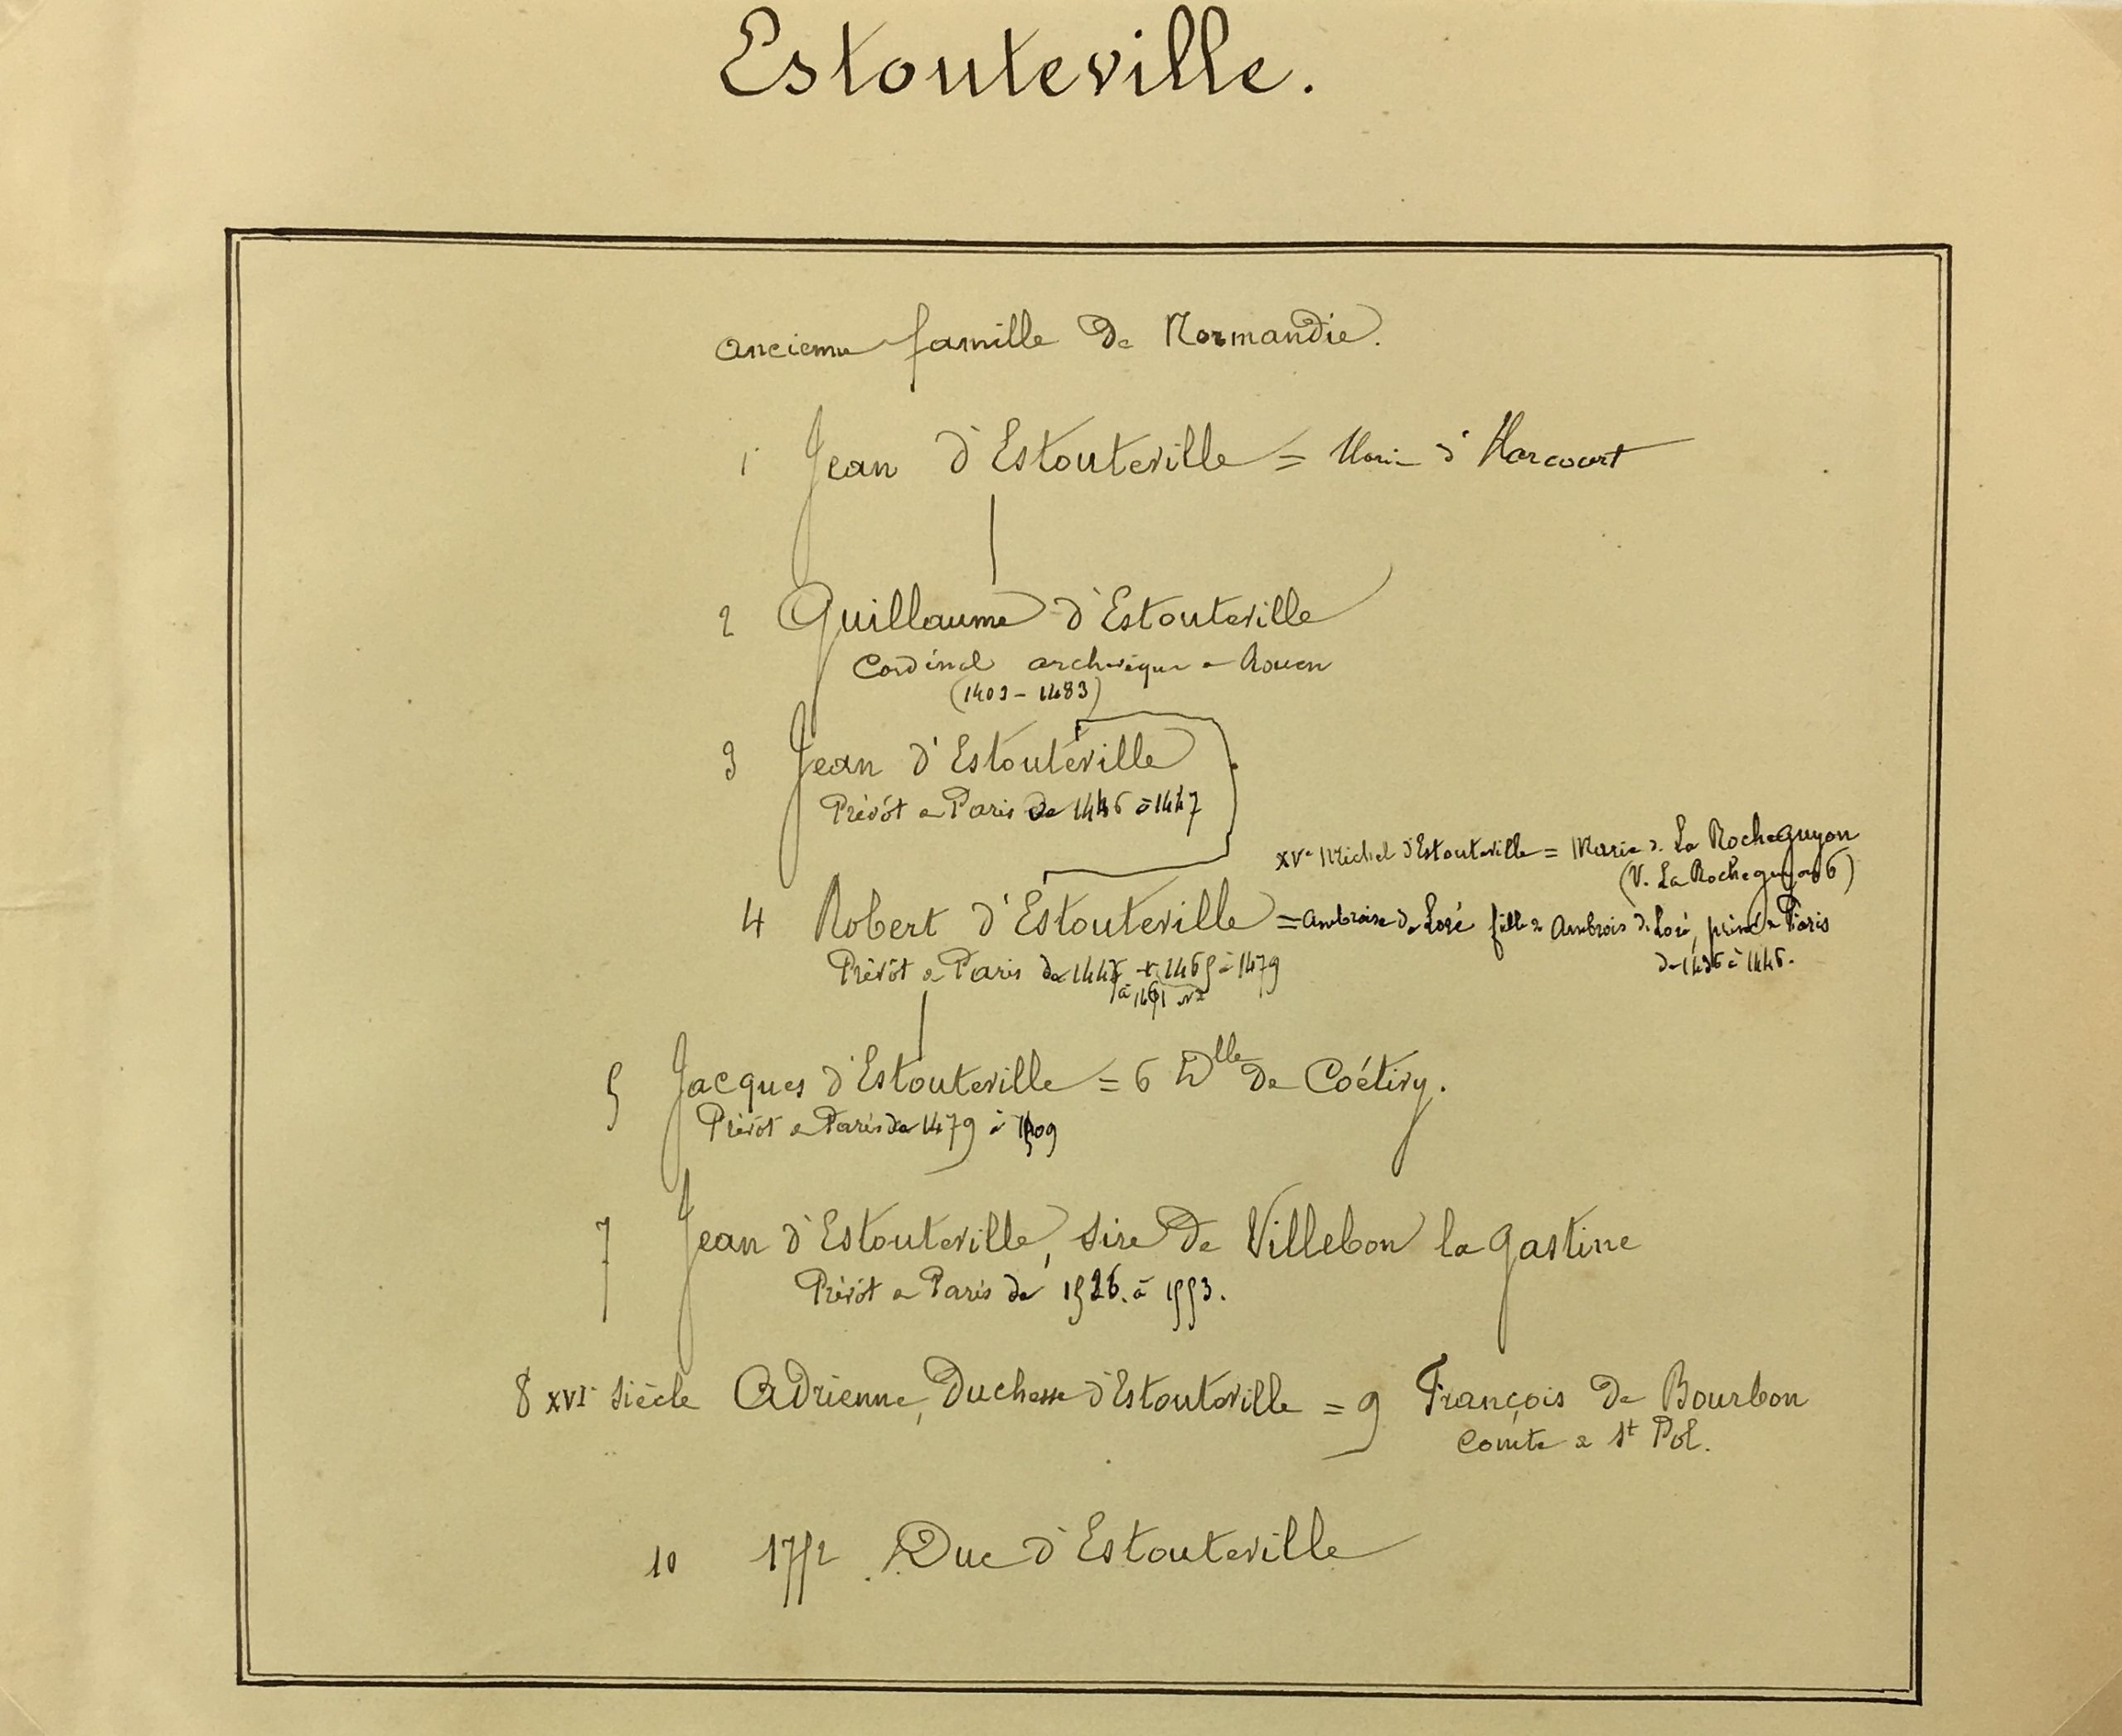 Estouteville.
ancienne famille de Normandie.
1 Jean d'Estouteville = Marie d'Harcourt
2 Guillaume d'Estouteville
Cardinal archevêque de Rouen
(1403 - 1483)
3 Jean d'Estouteville
Prévôt de Paris de 1446 à 1447
XVe Michel d'Estouteville = Marie de La Rocheguyon
(V. La Rocheguyon 6)
4 Robert d'Estouteville = Ambroise de Loré fille de Ambrois de Loré, de Paris
de 1436 à 1446.
Prévôt de Paris de 1447 et 1465 à 1479
à 1461
5 Jacques d'Estouteville = 6 Dlle de Coétivy.
Prévôt de Paris de 1479 à 1509
7 Jean d'Estouteville, sire de Villebon la gastine
Prévôt de Paris de 1526. à 1553.
8 XVIe siècle Adrienne, Duchesse d'Estouteville = 9 François de Bourbon
Comte de St Pol.
10 1752 Duc d'Estouteville